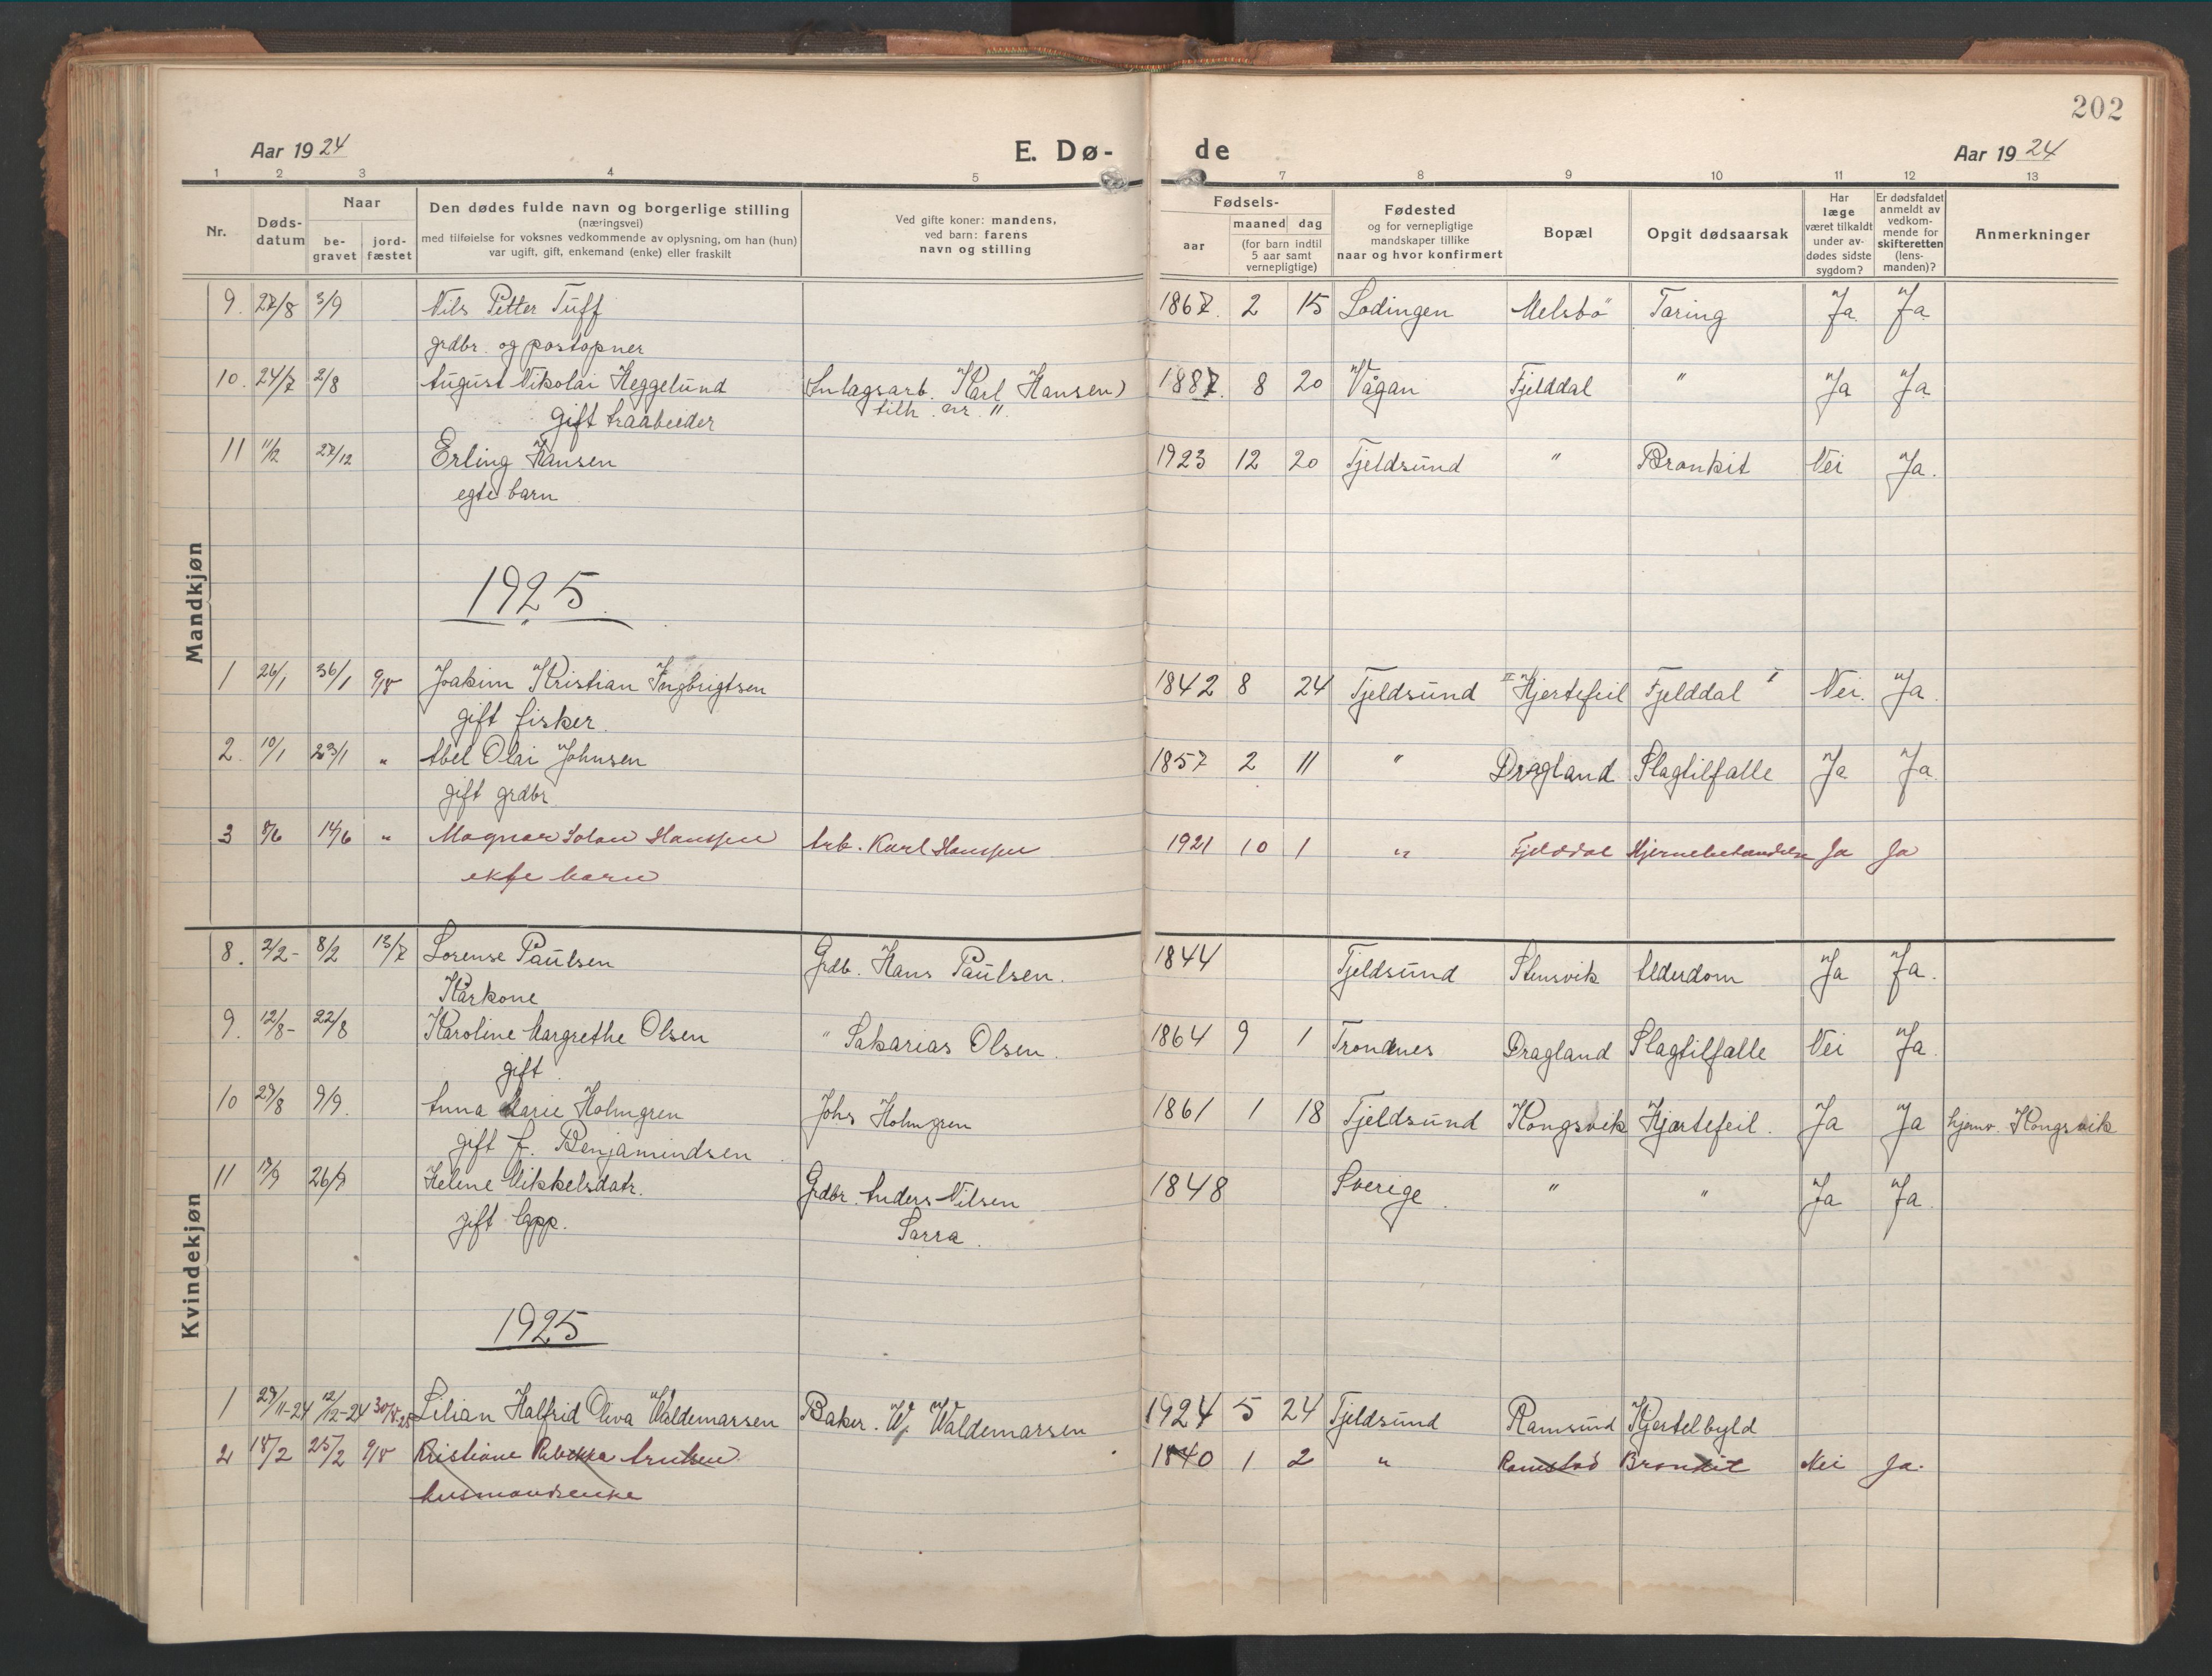 202
Aar 1924 E. Dø- de Aar 1924
1 2 3 4 5 7 8 9 10 11 12 13
Nr. Døds-datum Naar be-gravet jord-fæstet Den dødes fulde navn og borgerlige stilling (næringsvei) med tilføielse for voksnes vedkommende av oplysning, om han (hun) var ugift, gift, enkemand (enke) eller fraskilt Ved gifte koner: mandens, ved barn: farens navn og stilling Fødsels- aar maaned dag (for barn indtil 5 aar samt vernepligtige) Fødested og for vernepligtige mandskaper tillike naar og hvor konfirmert Bopæl Opgit dødsaarsak Har læge været tilkaldt under av-dødes sidste sygdom? Er dødsfaldet anmeldt av vedkom-mende for skifteretten (lens-manden)? Anmerkninger
Mandkjøn
9. 27/8 3/9 Nils Petter Tuff 1867. 2 15 Lodingen Melsbö Taring Ja Ja
grdbr. og postopner
10. 24/7 2/8 August Nikolai Heggelund (Anlagsarb. Karl Hansen) 1887. 8 20 Vågan Fjelddal " Ja Ja
gift tilh. nr. 11.
11 11/2 27/12 Erling Hansen 1923 12 20 Tjeldsund " Bronkit Nei Ja.
egte barn
1925.
1 26/1 36/1 9/8 Joakim Kristian Ingbrigtsen 1842 8 24 Tjeldsund II Hjertefeil Fjelddal I Nei. Ja.
gift fisker.
2. 10/1 23/1 " Abel Olai Johnsen 1857 2 11 " Dragland Slagtilfælle Ja Ja
gift grdbr.
3 8/6 14/6 " Magnar Hanssen Arb. Karl Hanssen 1921 10 1 " Fjelddal Ja Ja
ekte barn
Kvindekjøn
8. 2/2- 8/2 13/7 Lorense Paulsen Grdb. Hans Paulsen. 1844 Tjeldsund Stensvik Alderdom Ja Ja.
Kårkone
9. 12/8- 22/8 Karoline Margrethe Olsen " Sakarias Olsen. 1864 9 1 Trondnes Dragland Slagtilfælle Nei Ja.
gift
10 29/8 9/9. Anna Marie Holmgren Johs Holmgren 1861 1 18 Tjeldsund Kongsvik Hjærtefeil. Ja Ja hjemv. Kongsvik
gift f. Benjamindsen
11 17/9 26/9 Helene Mikkelsdatr. Grdbr. Anders Nilsen 1848 Sverige. " " Ja Ja.
gift lapp. Sarra.
1925
1 29/11-24 12/12-24 30/8-25 Lilian Halfrid Oliva Waldemarsen Baker. W. Waldemarsen 1924 5 24 Tjeldsund Ramsund Kjertelbyld
2 18/2 25/2 9/8 Kristiane Rebekka Arntsen 1840 1 2 " Ramstad Bronkit Nei Ja.
husmandsenke